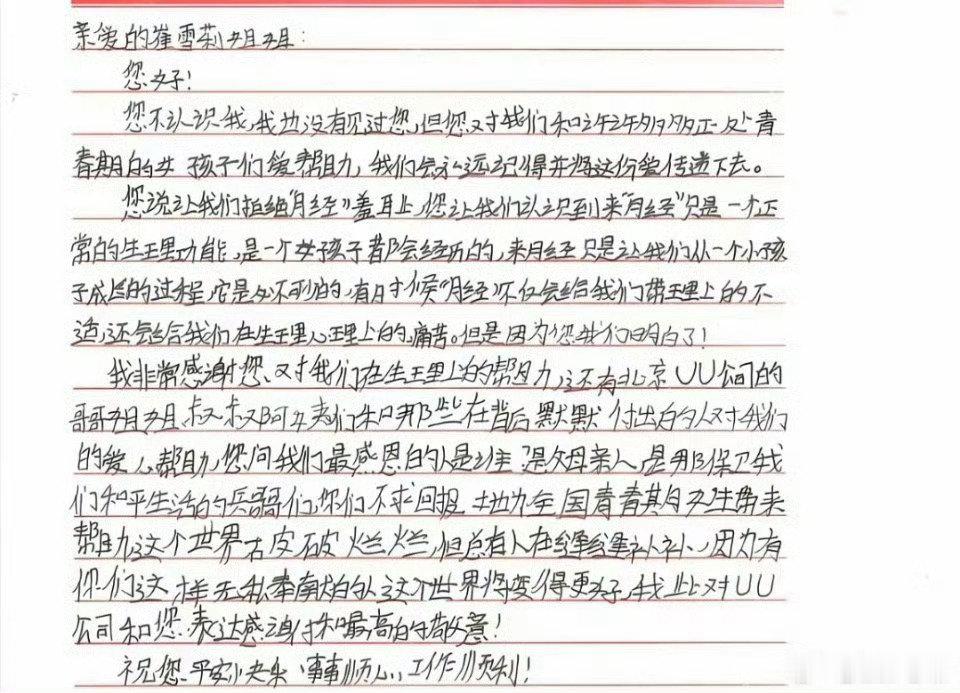 亲爱的崔雪莉姐姐：
您好！
您不认识我，我也没有见过您，但您对我们和许许多多正处青
春期的女孩子们爱帮助，我们会永远记得并将这份爱传递下去。
您说让我们拒绝"月经"羞耻，您让我们认识到来"月经"只是一个正
常的生理功能，是一个女孩子都会经历的，来月经只是让我们从一个小孩
子成长的过程，它是必不可少的，有时候"月经"不仅会给我们带理上的不
适，还会给我们在生理心理上的痛苦。但是因为您我们明白了！
我非常感谢您对我们在生理上的帮助，还有北京UU公司的
哥哥姐姐叔叔阿姨们和那些在背后默默付出的人对我们
的爱心帮助，您问我们最感恩的人是谁 是父母亲人，是那保卫我
们和平生活的兵哥们，你们不求回报 地为全国青春期女生带来
帮助这个世界破烂烂，但总有人在缝缝补补、因为有
你们这样无私奉献的人这个世界将变得更好，我此对UU
公司和您表达感谢和最高的敬意！
祝您平安快乐 事事顺心，工作顺利！